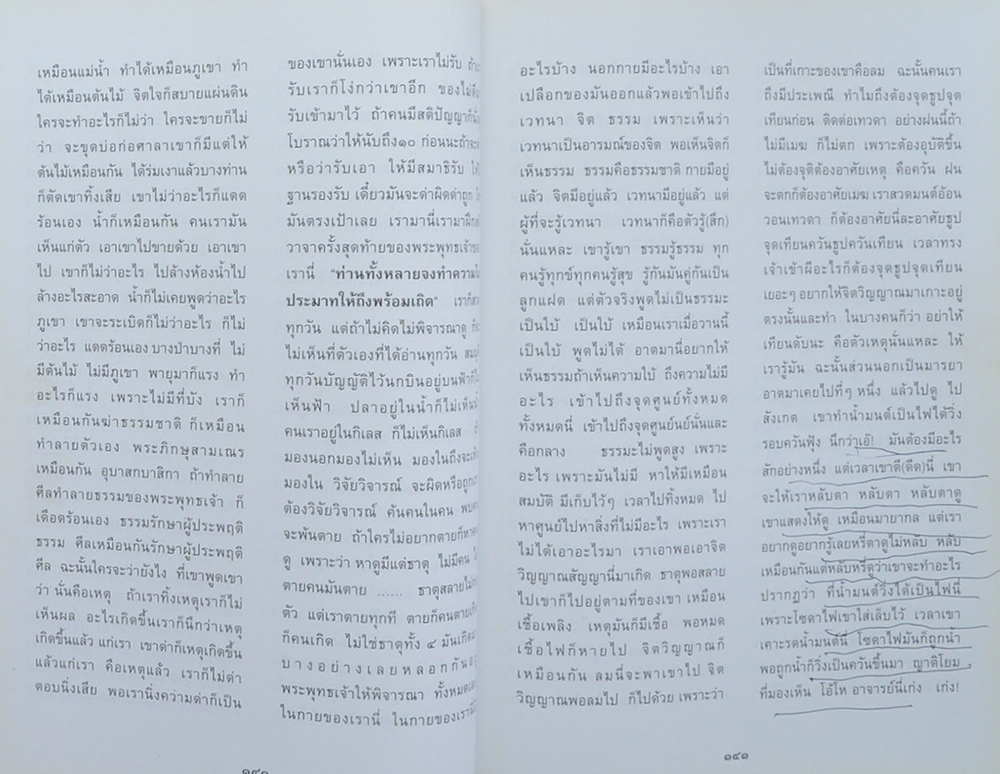 เหมือนแม่น้ำ ทำได้เหมือนภูเขา ทำ
ได้เหมือนต้นไม้ จิตใจก็สบายแผ่นดิน
ใครจะทำอะไรก็ไม่ว่า ใครจะขายก็ไม่
ว่า จะขุดบ่อก่อศาลาเขาก็มีแต่ให้
ต้นไม้เหมือนกัน ได้ร่มเงาแล้วบางท่าน
ก็ตัดเขาทิ้งเสีย เขาไม่ว่าอะไรก็แดด
ร้อนเอง น้ำก็เหมือนกัน คนเรามัน
เห็นแก่ตัว เอาเขาไปขายด้วย เอาเขา
ไป เขาก็ไม่ว่าอะไร ไปล้างห้องน้ำไป
ล้างอะไรสะอาด น้ำก็ไม่เคยพูดว่าอะไร
ภูเขา เขาจะระเบิดก็ไม่ว่าอะไร ก็ไม่
ว่าอะไร แดดร้อนเอง บางป่าบางที่ ไม่
มีต้นไม้ ไม่มีภูเขา พายุมาก็แรง ทำ
อะไรก็แรง เพราะไม่มีที่บัง เราก็
เหมือนกันฆ่าธรรมชาติ ก็เหมือน
ทำลายตัวเอง พระภิกษุสามเณร
เหมือนกัน อุบาสกบาสิกา ถ้าทำลาย
ศีลทำลายธรรมของพระพุทธเจ้า ก็
เดือดร้อนเอง ธรรมรักษาผู้ประพฤติ
ธรรม ศีลเหมือนกันรักษาผู้ประพฤติ
ศีล ฉะนั้นใครจะว่ายังไง ที่เขาพูดเขา
ว่า นั่นคือเหตุ ถ้าเราทิ้งเหตุเราก็ไม่
เห็นผล อะไรเกิดขึ้นเราก็นึกว่าเหตุ
เกิดขึ้นแล้ว แก่เรา เขาด่าก็เหตุเกิดขึ้น
แล้วแก่เรา คือเหตุแล้ว เราก็ไม่ด่า
ตอบนิ่งเสีย พอเรานิ่งความด่าก็เป็น
ของเขานั่นเอง เพราะเราไม่รับ
รับเราก็โง่กว่าเขาอีก ของไม่ดี
รับเข้ามาไว้ ถ้าคนมีสติปัญญาก็
โบราณว่าให้นับถึง๑๐ ก่อนนะถ้า
หรือว่ารับเอา ให้มีสมาธิรับ
ฐานรองรับ เดี๋ยวมันจะด่าผิดด่าถูก
มันตรงเป้าเลย เรามานี่เรามา
วาจาครั้งสุดท้ายของพระพุทธเจ้า
เรานี่ "ท่านทั้งหลายจงทำความ
ประมาทให้ถึงพร้อมเถิด"
ทุกวัน แต่ถ้าไม่คิดไม่พิจารณาดู
ไม่เห็นที่ตัวเองที่ได้อ่านทุกวัน
ทุกวันบัญญัติไว้นกบินอยู่บนฟ้าก็
เห็นฟ้า ปลาอยู่ในน้ำก็ไม่เห็น
คนเราอยู่ในกิเลส ก็ไม่เห็นกิเลส
มองนอกมองไม่เห็น มองในถึงจะ
มองใน วิจัยวิจารณ์ จะผิดหรือถูก
ต้องวิจัยวิจารณ์ ค้นคนในคน
จะพ้นตาย ถ้าใครไม่อยากตายก็หา
ดู เพราะว่า หาดูมีแต่ธาตุ ไม่มีคน
ตายคนมันตาย ...... ธาตุสลาย
ตัว แต่เราตายทุกที ตายก็คนตาย
ก็คนเกิด ไม่ใช่ธาตุทั้ง ๔ มันเกิด
บางอย่างเลยหลอกกัน
พระพุทธเจ้าให้พิจารณา
ในกายของเรานี่ ในกายของเรานี่
อะไรบ้าง นอกกายมีอะไรบ้าง เอา
เปลือกของมันออกแล้วพอเข้าไปถึง
เวทนา จิต ธรรม เพราะเห็นว่า
เวทนาเป็นอารมณ์ของจิต พอเห็นจิตก็
เห็นธรรม ธรรมคือธรรมชาติ กายมีอยู่
แล้ว จิตมีอยู่แล้ว เวทนามีอยู่แล้ว แต่
ผู้ที่จะรู้เวทนา เวทนาก็คือตัวรู้(สึก)
นั่นแหละ เขารู้เขา ธรรมรู้ธรรม ทุก
คนรู้ทุกข์ทุกคนรู้สุข รู้กันมันคู่กันเป็น
ลูกแฝด แต่ตัวจริงพูดไม่เป็นธรรมะ
เป็นใบ้ เป็นใบ้ เหมือนเราเมื่อวานนี้
เป็นใบ้ พูดไม่ได้ อาตมานี่อยากให้
เห็นธรรมถ้าเห็นความใบ้ ถึงความไม่มี
อะไร เข้าไปถึงจุดศูนย์ทั้งหมด
ทั้งหมดนี่ เข้าไปถึงจุดศูนย์นย์นั่นและ
คือกลาง ธรรมะไม่พูดสูง เพราะ
อะไร เพราะมันไม่มี หาให้มีเหมือน
สมบัติ มีเก็บไว้ๆ เวลาไปทิ้งหมด ไป
หาศูนย์ไปหาสิ่งที่ไม่มีอะไร เพราะเรา
ไม่ได้เอาอะไรมา เราเอาพอเอาจิต
วิญญาณสัญญานี่มาเกิด ธาตุพอสลาย
ไปเขาก็ไปอยู่ตามที่ของเขา เหมือน
เชื้อเพลิง เหตุมันก็มีเชื้อ พอหมด
เชื้อไฟก็หายไป จิตวิญญาณก็
เหมือนกัน ลมนี่จะพาเขาไป จิต
วิญญาณพอลมไป ก็ไปด้วย เพราะว่า
๑๔๑
เป็นที่เกาะของเขาคือลม ฉะนั้นคนเรา
ถึงมีประเพณี ทำไมถึงต้องจุดธูปจุด
เทียนก่อน ติดต่อเทวดา อย่างฝนนี้ถ้า
ไม่มีเมฆ ก็ไม่ตก เพราะต้องอุบัติขึ้น
ไม่ต้องจุติต้องอาศัยเหตุ คือควัน ฝน
จะตกก็ต้องอาศัยเมฆ เราสวดมนต์อ้อน
วอนเทวดา ก็ต้องอาศัยนี่ละอาศัยธูป
จุดเทียนควันธูปควันเทียน เวลาทรง
เจ้าเข้าผีอะไรก็ต้องจุดธูปจุดเทียน
เยอะๆ อยากให้จิตวิญญาณมาเกาะอยู่
ตรงนั้นและทำ ในบางคนก็ว่า อย่าให้
เทียนดับนะ คือตัวเหตุนั่นแหละ ให้
เรารู้มัน ฉะนั้นส่วนนอกเป็นมารยา
อาตมาเคยไปที่ๆ หนึ่ง แล้วไปดู ไป
สังเกต เขาทำน้ำมนต์เป็นไฟได้วิ่ง
รอบควันฟุ้ง นึกว่าเอ๊! มันต้องมีอะไร
สักอย่างหนึ่ง แต่เวลาเขาตี(ดีด)นี่ เขา
จะให้เราหลับตา หลับตา หลับตาดู
เขาแสดงให้ดู เหมือนมายากล แต่เรา
อยากดูอยากรู้เลยหรี่ตาดูไม่หลับ หลับ
เหมือนกันแต่หลับหรี่ดูว่าเขาจะทำอะไร
ปรากฏว่า ที่น้ำมนต์วิ่งได้เป็นไฟนี่
เพราะโซดาไฟเขาใส่เล็บไว้ เวลาเขา
เคาะรดน้ำมนต์นี่ โซดาไฟมันก็ถูกน้ำ
พอถูกน้ำก็วิ่งเป็นควันขึ้นมา ญาติโยม
ที่มองเห็น โอ้โห อาจารย์นี่เก่ง เก่ง!